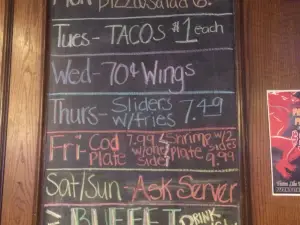 Mon Pizza & Salad 8.
Tues- TACOS $1 each
Wed- 70¢ Wings
Thurs- Sliders w/fries 7.49
Fri- Cod Plate 7.99 w/one side
Shrimp Plate w/2 sides 9.99
Sat/Sun- Ask Server
BUFFET DRINK